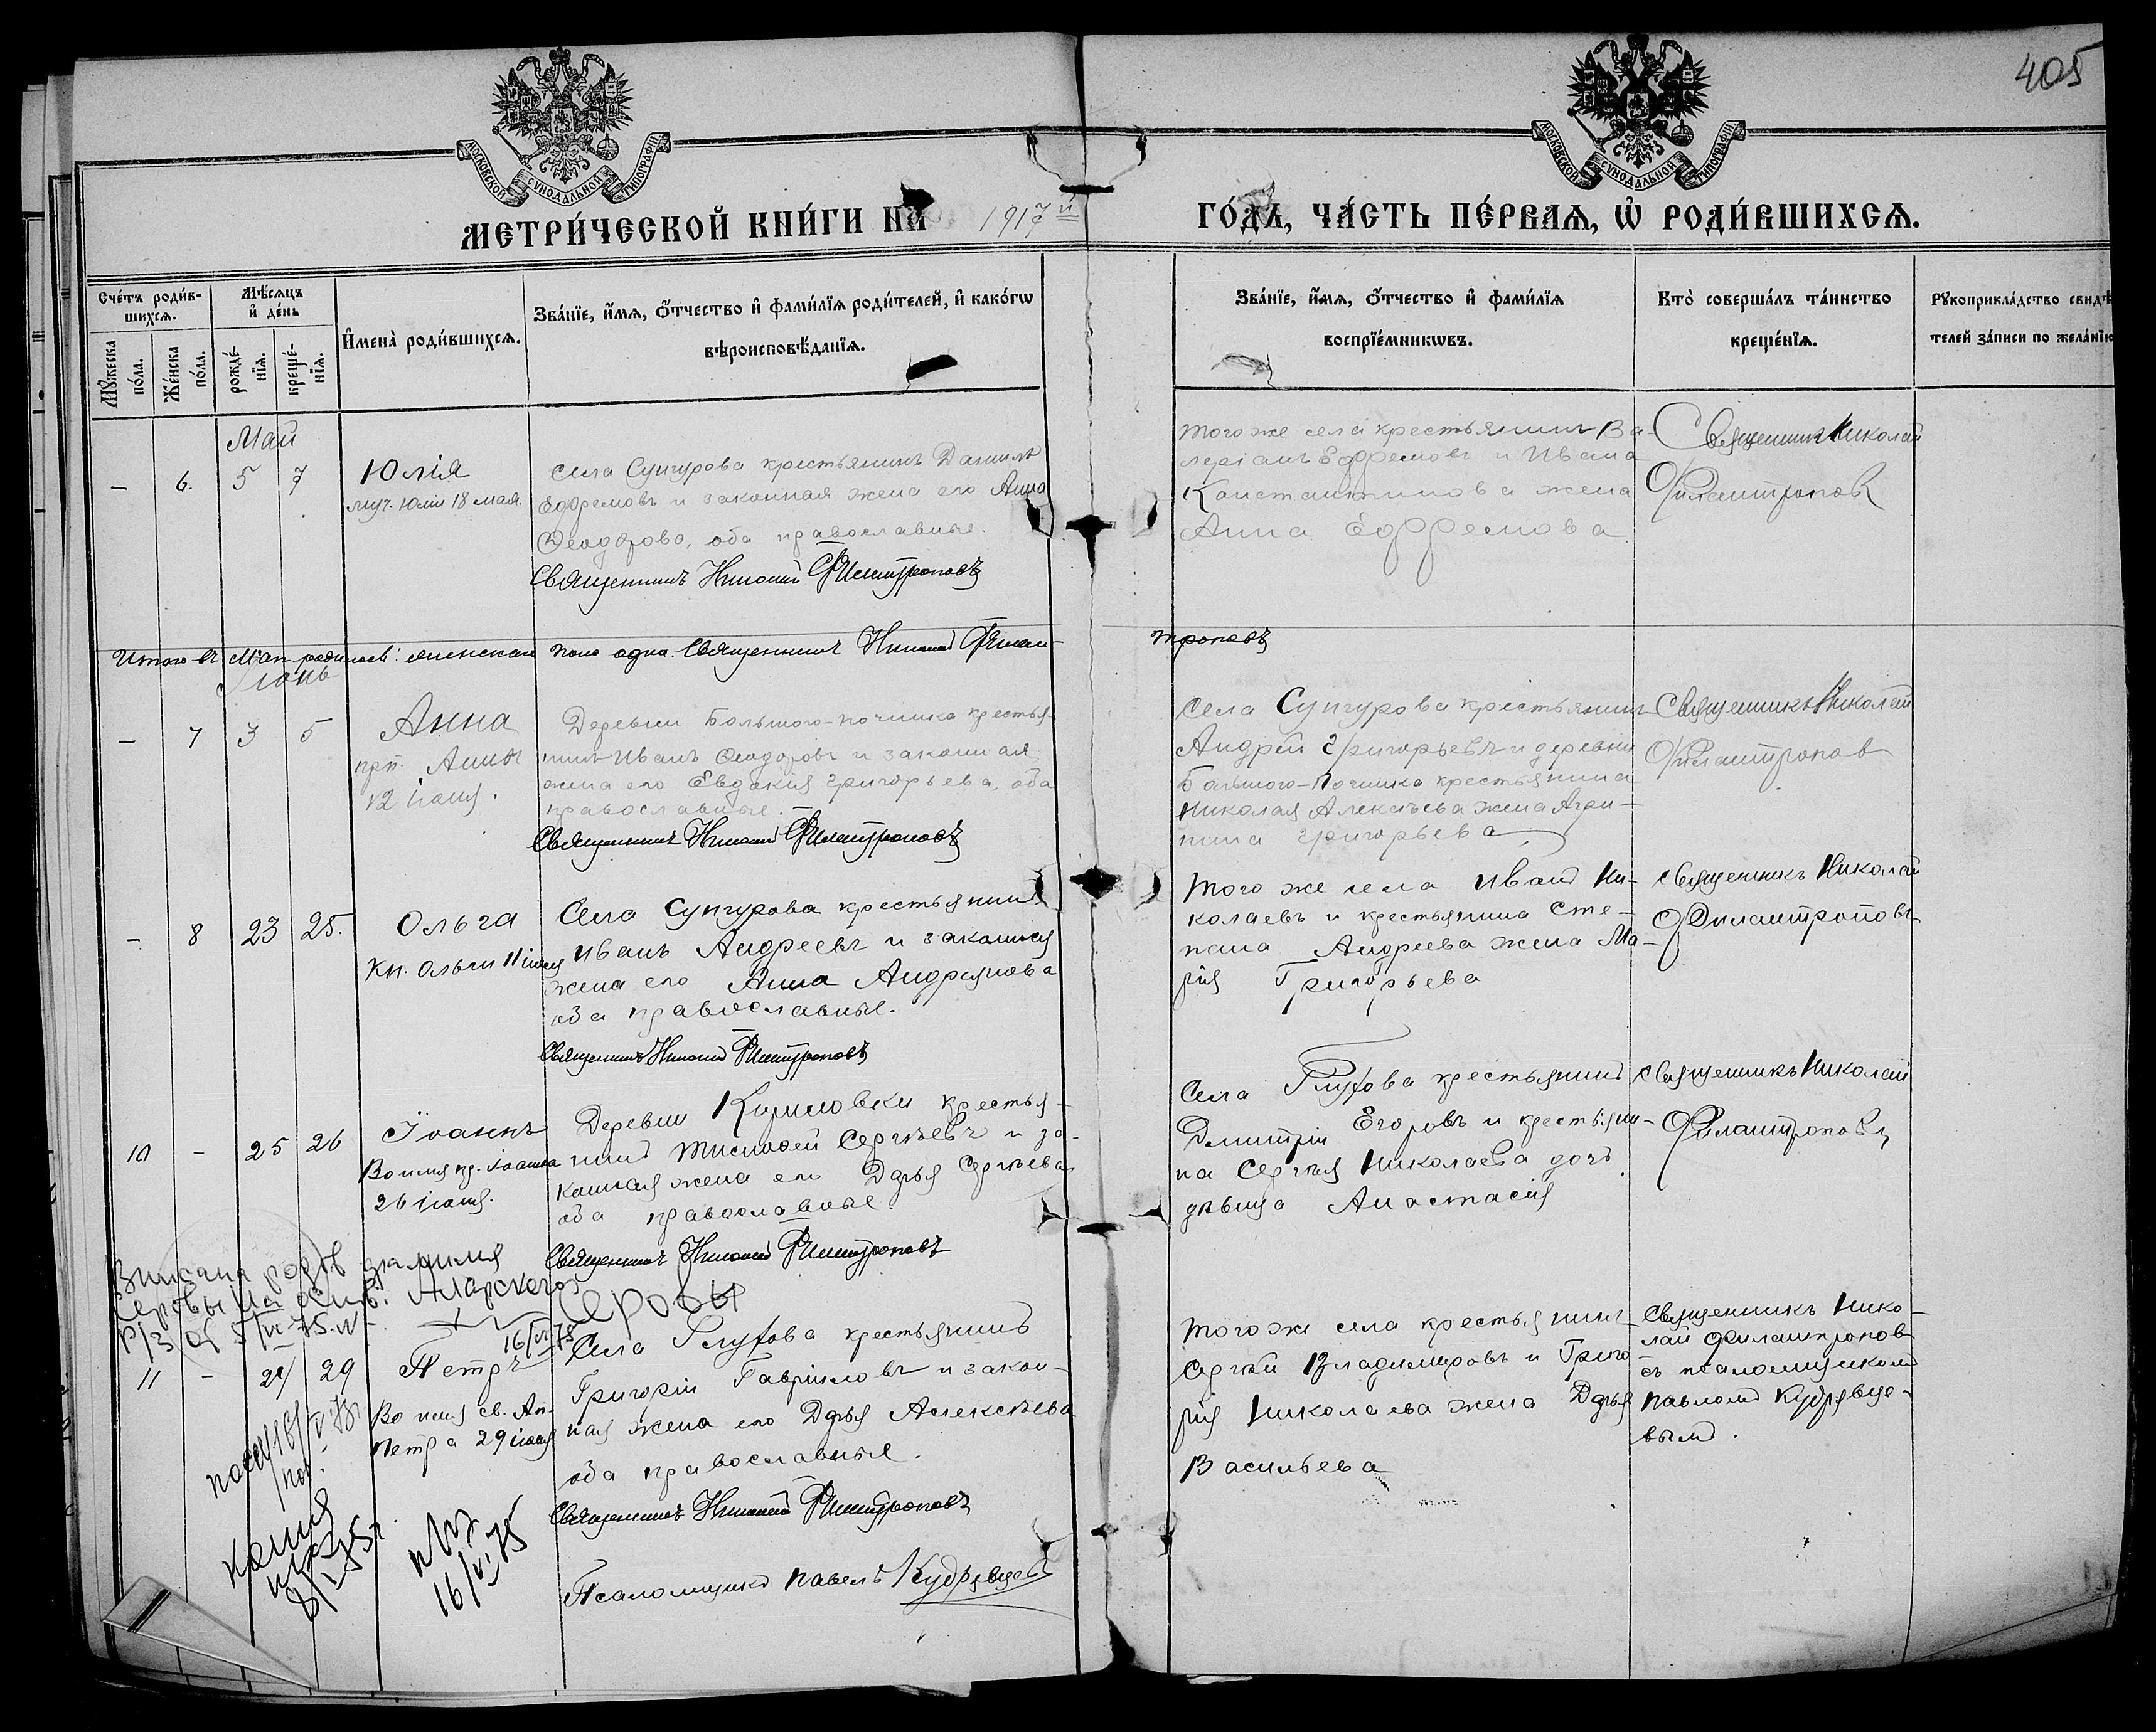 405
МОСКОВСКОЙ СѴНОДАЛЬНОЙ ТИПОГРАФІИ
МОСКОВСКОЙ СѴНОДАЛЬНОЙ ТИПОГРАФІИ
МЕТРИ́ЧЕСКОЙ КНИ́ГИ НА 1917й
ГО́ДЪ, ЧА́СТЬ ПЕ́РВАЯ, Ѡ РОДИ́ВШИХСЯ.
Сче́тъ роди́в-
шихся.
Мꙋ́жеска по́ла.
Же́нска по́ла.
Мѣ́сяцъ и де́нь
рожде́-
нїя.
креще́-
нїя.
Имена̀ роди́вшихся.
Зва́нїе, и́мя, ѻ́тчество и фами́лїя роди́телей, и како́гѡ
вѣроисповѣ́данїя.
Зва́нїе, и́мя, ѻ́тчество и фами́лїя
воспрїе́мникѡвъ.
Кто̀ соверша́лъ та́инство
креще́нїя.
Рꙋкоприкла́дство свидѣ
телей за́писи по жела́нїю
Май
– 6. 5 7
Юлія
муч. Юліи 18 мая.
Села Сунгурова крестьянинъ Даніилъ
Ефремовъ и законная жена его Анна
Ѳеодорова, оба православные.
Священникъ Николай Филантроповъ
того же села крестьянинъ Ва-
леріанъ Ефремовъ и Ивана
Константинова жена
Анна Ефремова
Священникъ Николай
Филантропов
Итого въ Маѣ родилось: женскаго пола одна. Священникъ Николай Филан-
троповъ
Іюнь
– 7 3 5
Анна
прп. Анны
12 іюня.
Деревни Большого-починка крестья-
нинъ Иванъ Ѳеодоровъ и законная
жена его Евдокия Григорьева, оба
православные.
Священникъ Николай Филантроповъ
Села Сунгурова крестьянинъ
Андрей Григорьевъ и деревни
Большого-Починка крестьянина
Николая Алексѣева жена Агри-
пина Григорьева
Священникъ Николай
Филантропов
– 8 23 25.
Ольга
кн. Ольги 11 іюля
Села Сунгурова крестьянинъ
Иванъ Андреевъ и законная
жена его Анна Андреянова
оба православные.
Священникъ Николай Филантроповъ
Того же села Иванъ Ни-
колаевъ и крестьянина Сте-
пана Андреева жена Ма-
рія Григорьева
Священникъ Николай
Филантроповъ
10 – 25 26
Іоаннъ
Во имя пр. Іоанна
26 іюня.
Деревни крестья-
нинъ Тимофей Сергѣевъ и за-
конная жена его Дарья Сергѣева
оба православные.
Священникъ Николай Филантроповъ
Села Глухова крестьянинъ
Дмитрій Егоровъ и крестьяни-
на Сергѣя Николаева дочь
дѣвица Анастасія
Священникъ Николай
Филантроповъ
Вписана фамилия
Серовы на осн.
Серовы
16/VI-75
11 – 29
Петръ
Во имя св. Ап.
Петра 29 іюня
Села Глухова крестьянинъ
Григорій Гавриловъ и закон-
ная жена его Дарья Алексѣева
оба православные.
Священникъ Николай Филантроповъ
Псаломщикъ Павелъ Кудрявцевъ
Того же села крестьянинъ
Сергѣй Владимировъ и Григо
рія Николаева жена Дарья
Васильева
Священникъ Нико-
лай Филантропов
съ псаломщикомъ
Павломъ Кудрявце-
вымъ.
копия
16/VI 75